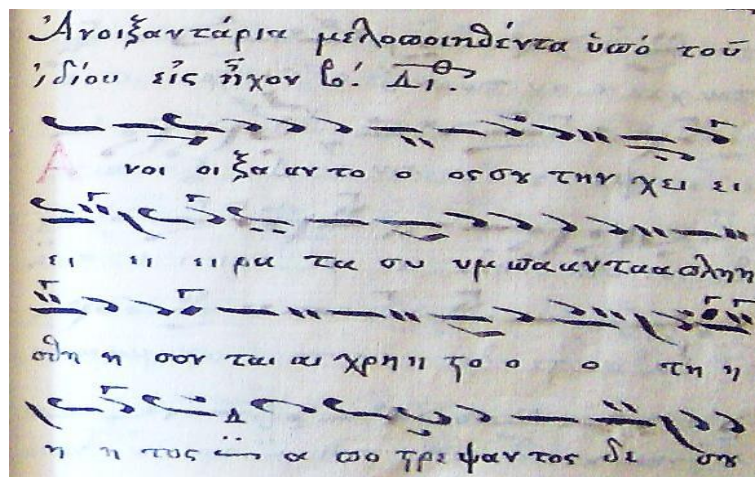 Ἀνοιξαντάρια μελοποιηθέντα ὑπό τοῦ
ἰδίου εἰς ἦχον β΄. Δι.
Α νοι οι ξα αν το ο ος σου την χει ει
ει ει ει ρα τα συ υμ πα αν τα α πλη η
σθη η σον ται αι χρη η στο ο ο τη η
η η τος α πο στρε ψαν τος δε σου